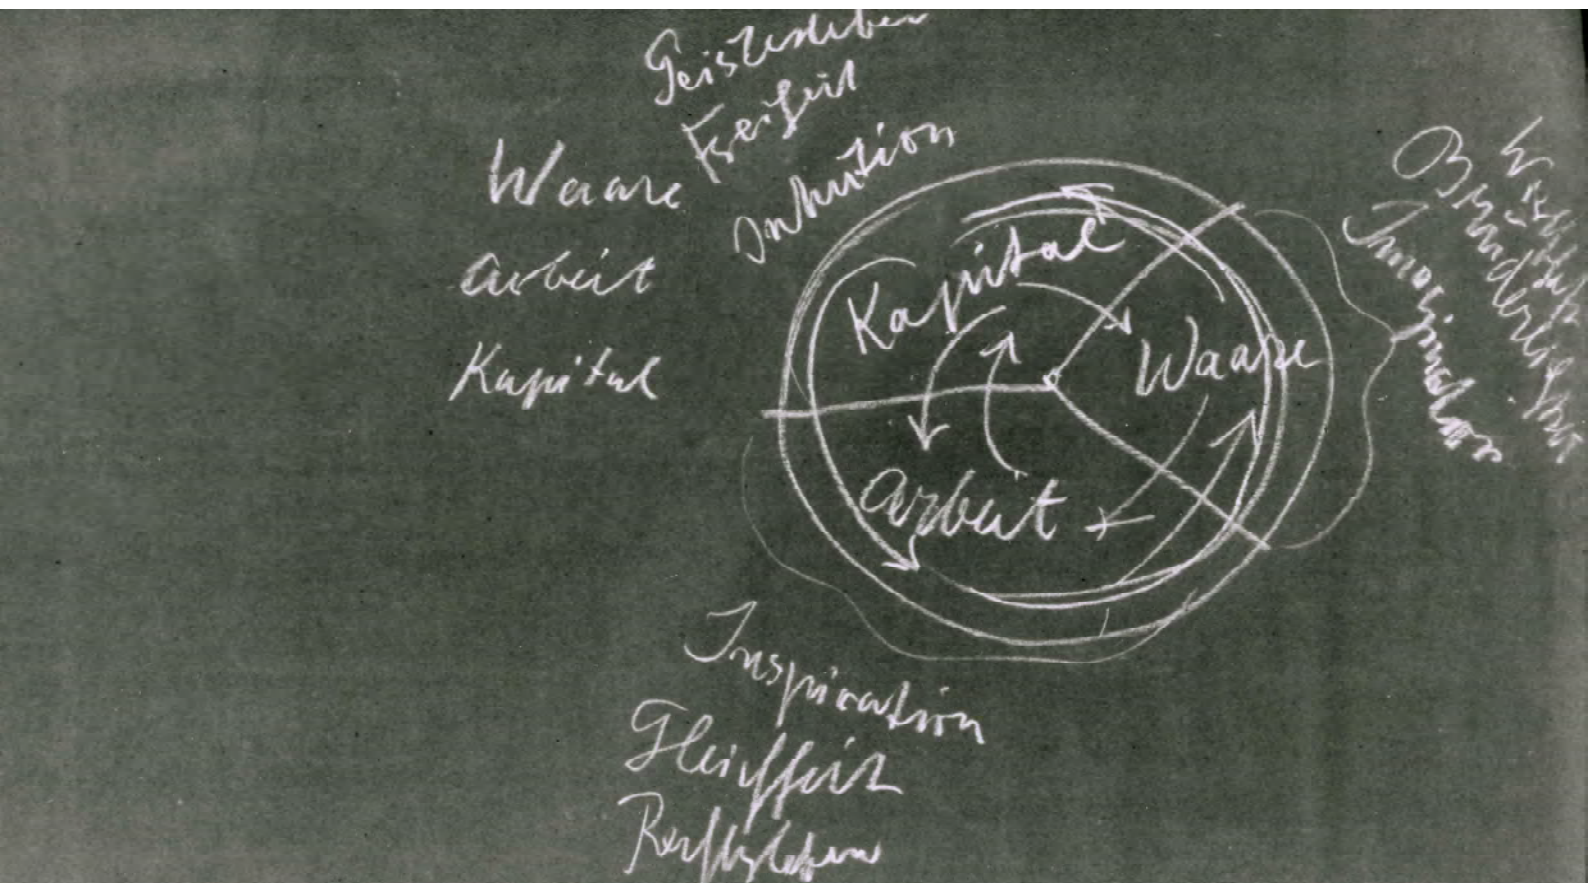 Geistesleben
Freiheit
Intuition
Waare
Arbeit
Kapital
Kapital
Waare
Arbeit
Imagination
Brüderlichkeit
Inspiration
Gleichheit
Rechtsleben